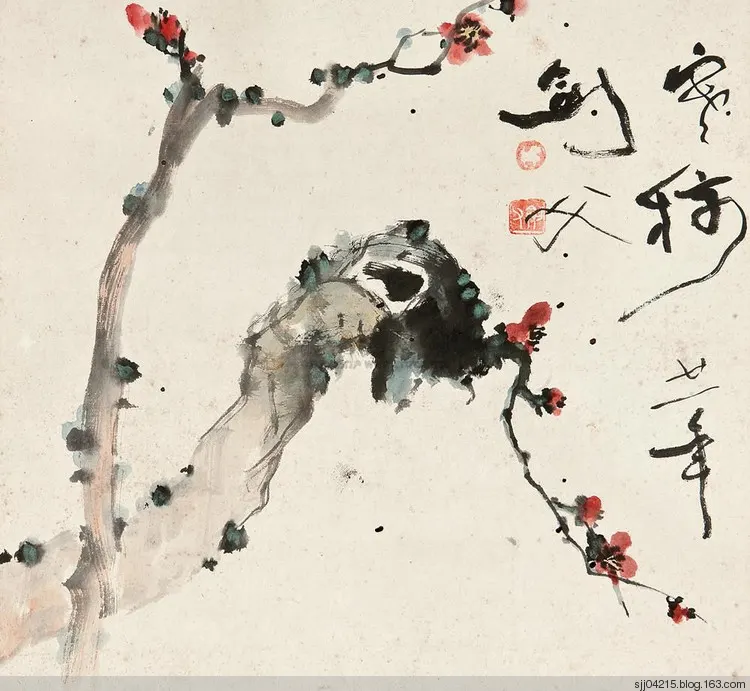 寒
廿一年
劍父
sjj04215.blog.163.com